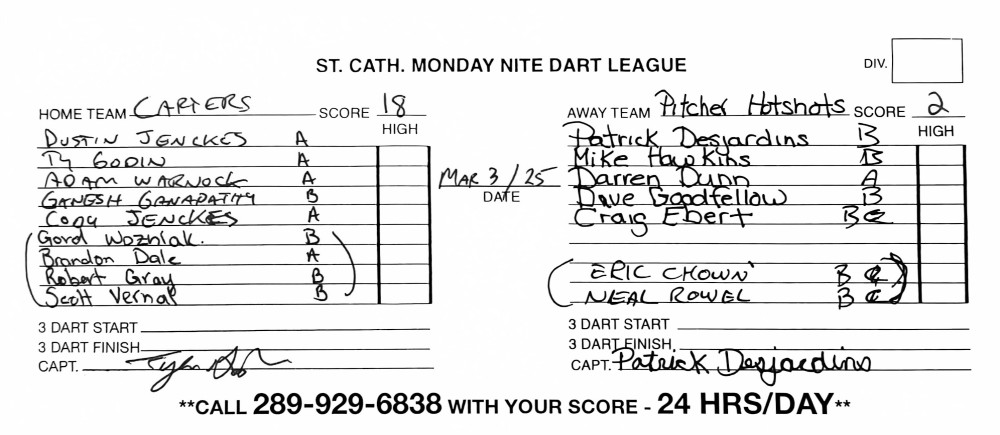 ST. CATH. MONDAY NITE DART LEAGUE
DIV.
HOME TEAM CARTERS SCORE 18
HIGH
DUSTIN JENCKES A
TY GODIN A
ADAM WARNOCK A
GANESH GANAPATHY B
CODY JENCKES A
Gord Wozniak. B
Brandon Dale A
Robert Gray B
Scott Vernal B
3 DART START
3 DART FINISH
CAPT.
MAR 3/25
DATE
AWAY TEAM Pitcher Hotshots SCORE 2
HIGH
Patrick Desjardins B
Mike Hawkins B
Darren Dunn A
Dave Goodfellow B
Craig Ebert B
ERIC CHOWN B
NEAL ROWEL B
3 DART START
3 DART FINISH
CAPT. Patrick Desjardins
**CALL 289-929-6838 WITH YOUR SCORE - 24 HRS/DAY**